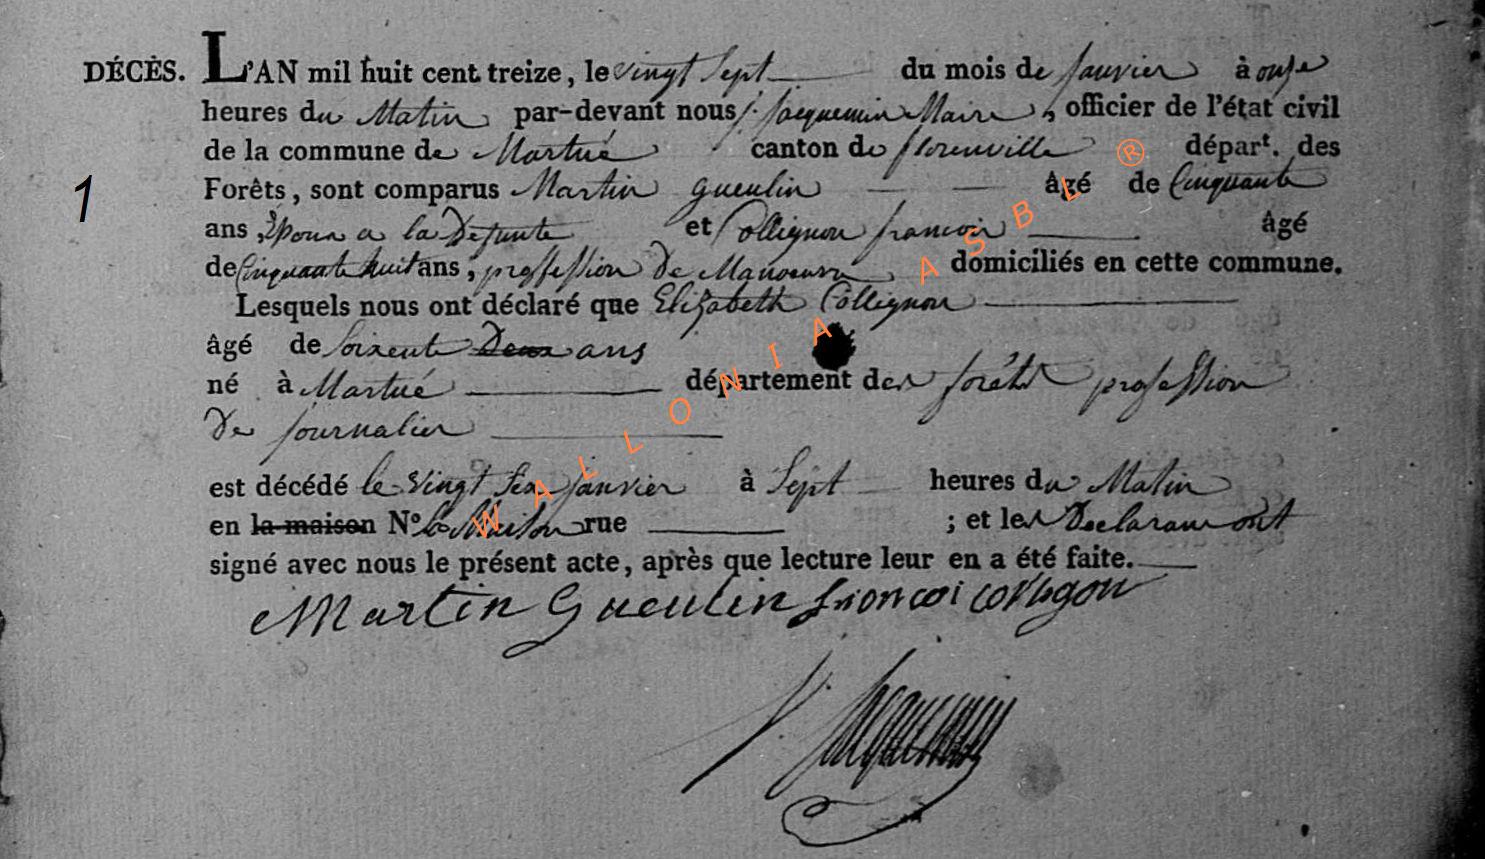 DÉCÈS. L'AN mil huit cent treize, le vingt sept du mois de janvier à onze
heures du Matin par-devant nous j. jacquemin Maire, officier de l'état civil
de la commune de Martué canton de florenville départ. des
1 Forêts, sont comparus Martin gueulin âgé de Cinquante
ans, Epoux a la Defunte et Collignon francoi âgé
de Cinquante huit ans, proffession de Manoeuvre domiciliés en cette commune.
Lesquels nous ont déclaré que Elizabeth Collignon
âgé de Soixente Deux ans
né à Martué département des forêts profession
de journalier
est décédé le Vingt Six janvier à Sept heures du Matin
en la maison N° la Maison rue ; et les Declarant ont
signé avec nous le présent acte, après que lecture leur en a été faite.
Martin Gueulin francoi collignon
J. Jacquemin
WALLONIA ASBL ®